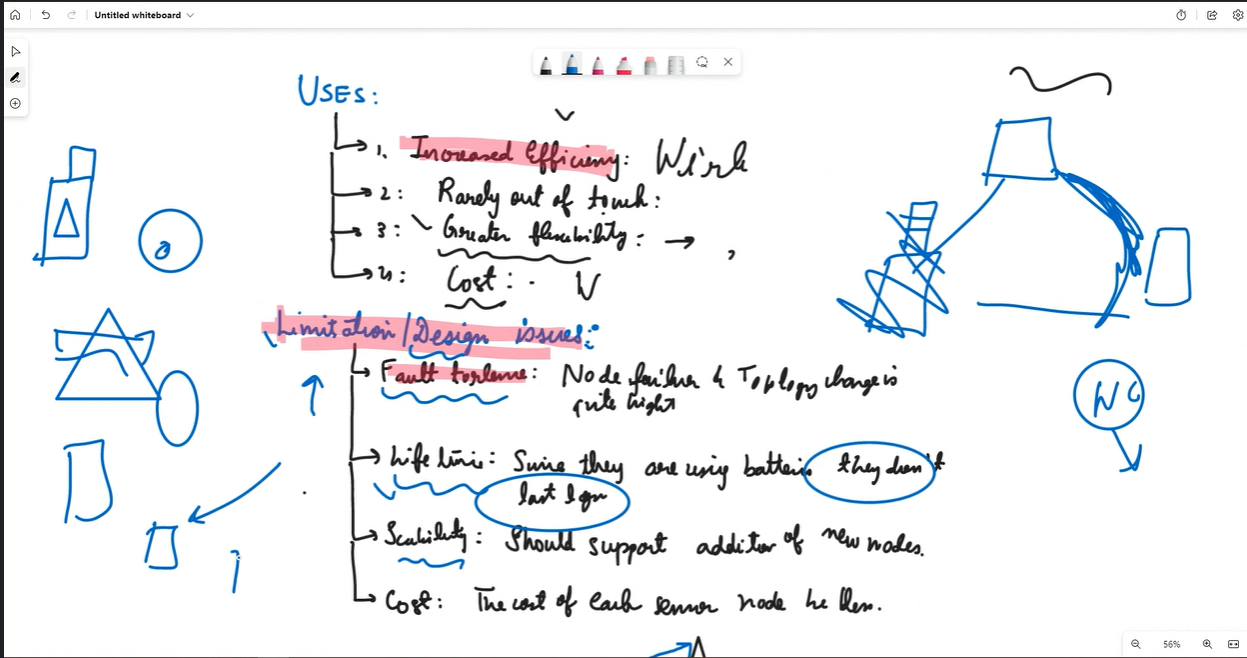 Untitled whiteboard
USES:
1. Increased Efficieny:
2: Rarely out of touch:
3: Greater flexibility: → ,
4: Cost:
Limitation/Design issues:
Fault torlence: Node failure & Toplogy change is
quite hight
Life time: Since they are using batteris they don't
last lon
Scability: Should support additior of new nodes.
Cost: The cost of each sensor node be less.
56%